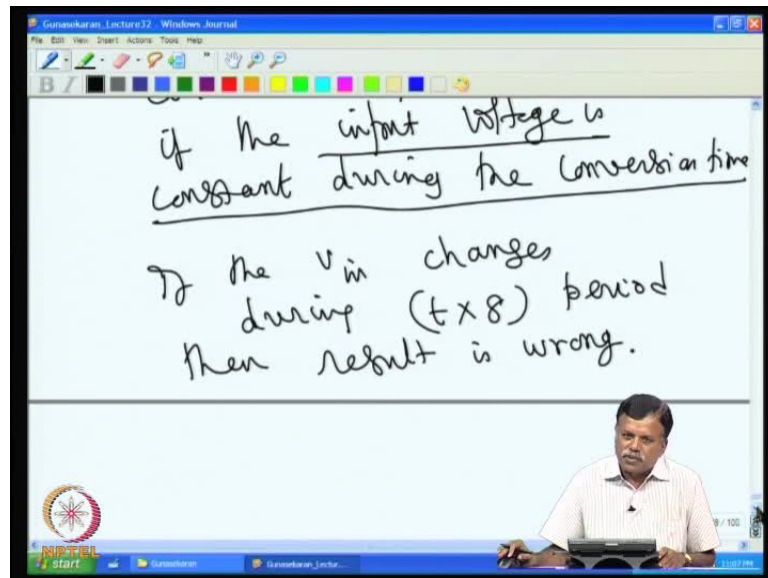 Gunasekaran_Lecture32 - Windows Journal
File Edit View Insert Actions Tools Help
B I
if the input voltage is
constant during the conversion time
If the Vin changes
during (t x 8) period
then result is wrong.
/ 100
NPTEL
start Gunasekaran Gunasekaran_Lectur... 11:07 PM